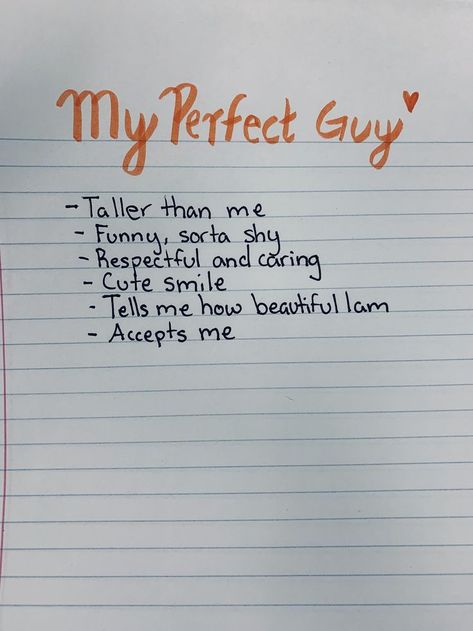 My Perfect Guy
- Taller than me
- Funny, sorta shy
- Respectful and caring
- Cute smile
- Tells me how beautiful I am
- Accepts me